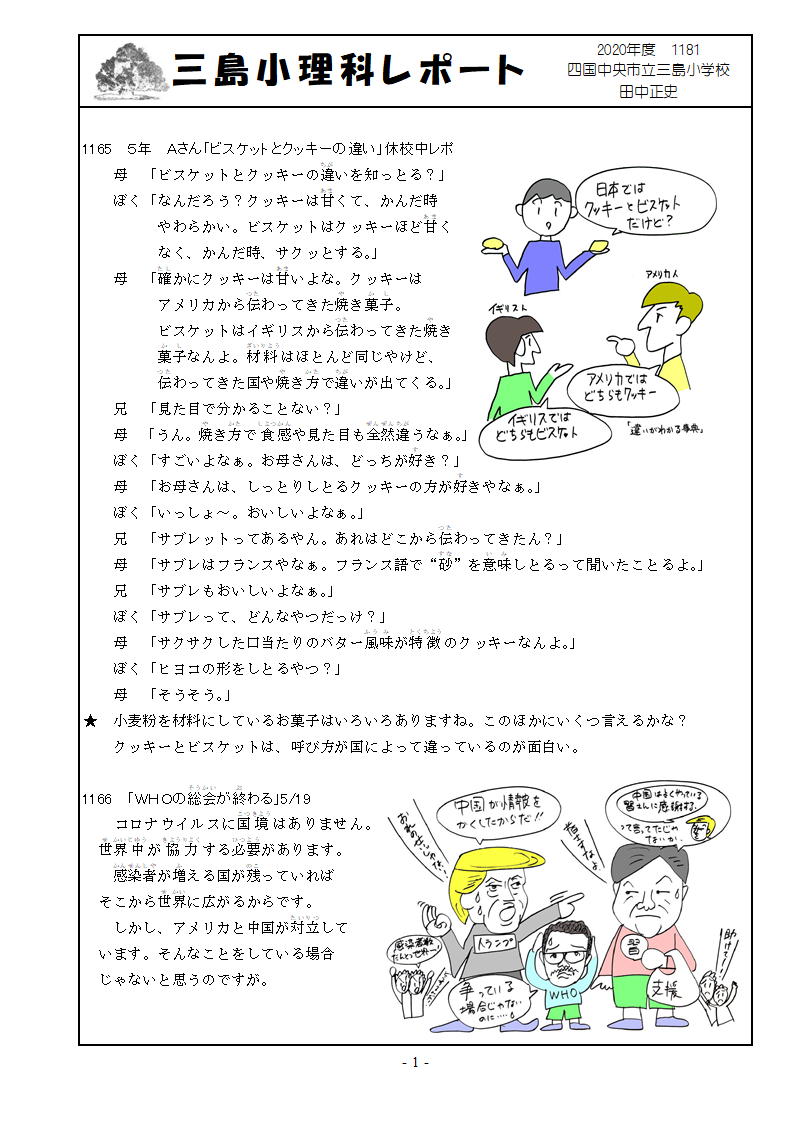 三島小理科レポート
2020年度　1181
四国中央市立三島小学校
田中正史
1165　5年　Aさん「ビスケットとクッキーの違い」休校中レポ
母　「ビスケットとクッキーの違いを知っとる？」
ぼく「なんだろう？クッキーは甘くて、かんだ時
やわらかい。ビスケットはクッキーほど甘く
なく、かんだ時、サクッとする。」
母　「確かにクッキーは甘いよな。クッキーは
アメリカから伝わってきた焼き菓子。
ビスケットはイギリスから伝わってきた焼き
菓子なんよ。材料はほとんど同じやけど、
伝わってきた国や焼き方で違いが出てくる。」
兄　「見た目で分かることない？」
母　「うん。焼き方で食感や見た目も全然違うなぁ。」
ぼく「すごいよなぁ。お母さんは、どっちが好き？」
母　「お母さんは、しっとりしとるクッキーの方が好きやなぁ。」
ぼく「いっしょ～。おいしいよなぁ。」
兄　「サブレットってあるやん。あれはどこから伝わってきたん？」
母　「サブレはフランスやなぁ。フランス語で“砂”を意味しとるって聞いたことるよ。」
兄　「サブレもおいしいよなぁ。」
ぼく「サブレって、どんなやつだっけ？」
母　「サクサクした口当たりのバター風味が特徴のクッキーなんよ。」
ぼく「ヒヨコの形をしとるやつ？」
母　「そうそう。」
★　小麦粉を材料にしているお菓子はいろいろありますね。このほかにいくつ言えるかな？
クッキーとビスケットは、呼び方が国によって違っているのが面白い。
日本では
クッキーとビスケット
だけど？
アメリカ人
イギリス人
アメリカでは
どちらもクッキー
イギリスでは
どちらもビスケット
「違いがわかる事典」
1166　「WHOの総会が終わる」5/19
コロナウイルスに国境はありません。
世界中が協力する必要があります。
感染者が増える国が残っていれば
そこから世界に広がるからです。
しかし、アメリカと中国が対立して
います。そんなことをしている場合
じゃないと思うのですが。
中国が情報を
かくしたからだ!!
おれのせいじゃない!
中国はよくやっている
習さんに感謝する。
って言ってたじゃ
ないか。
トランプ
習
支援
WHO
助けて!!
争っている
場合じゃない
のに……。
- 1 -